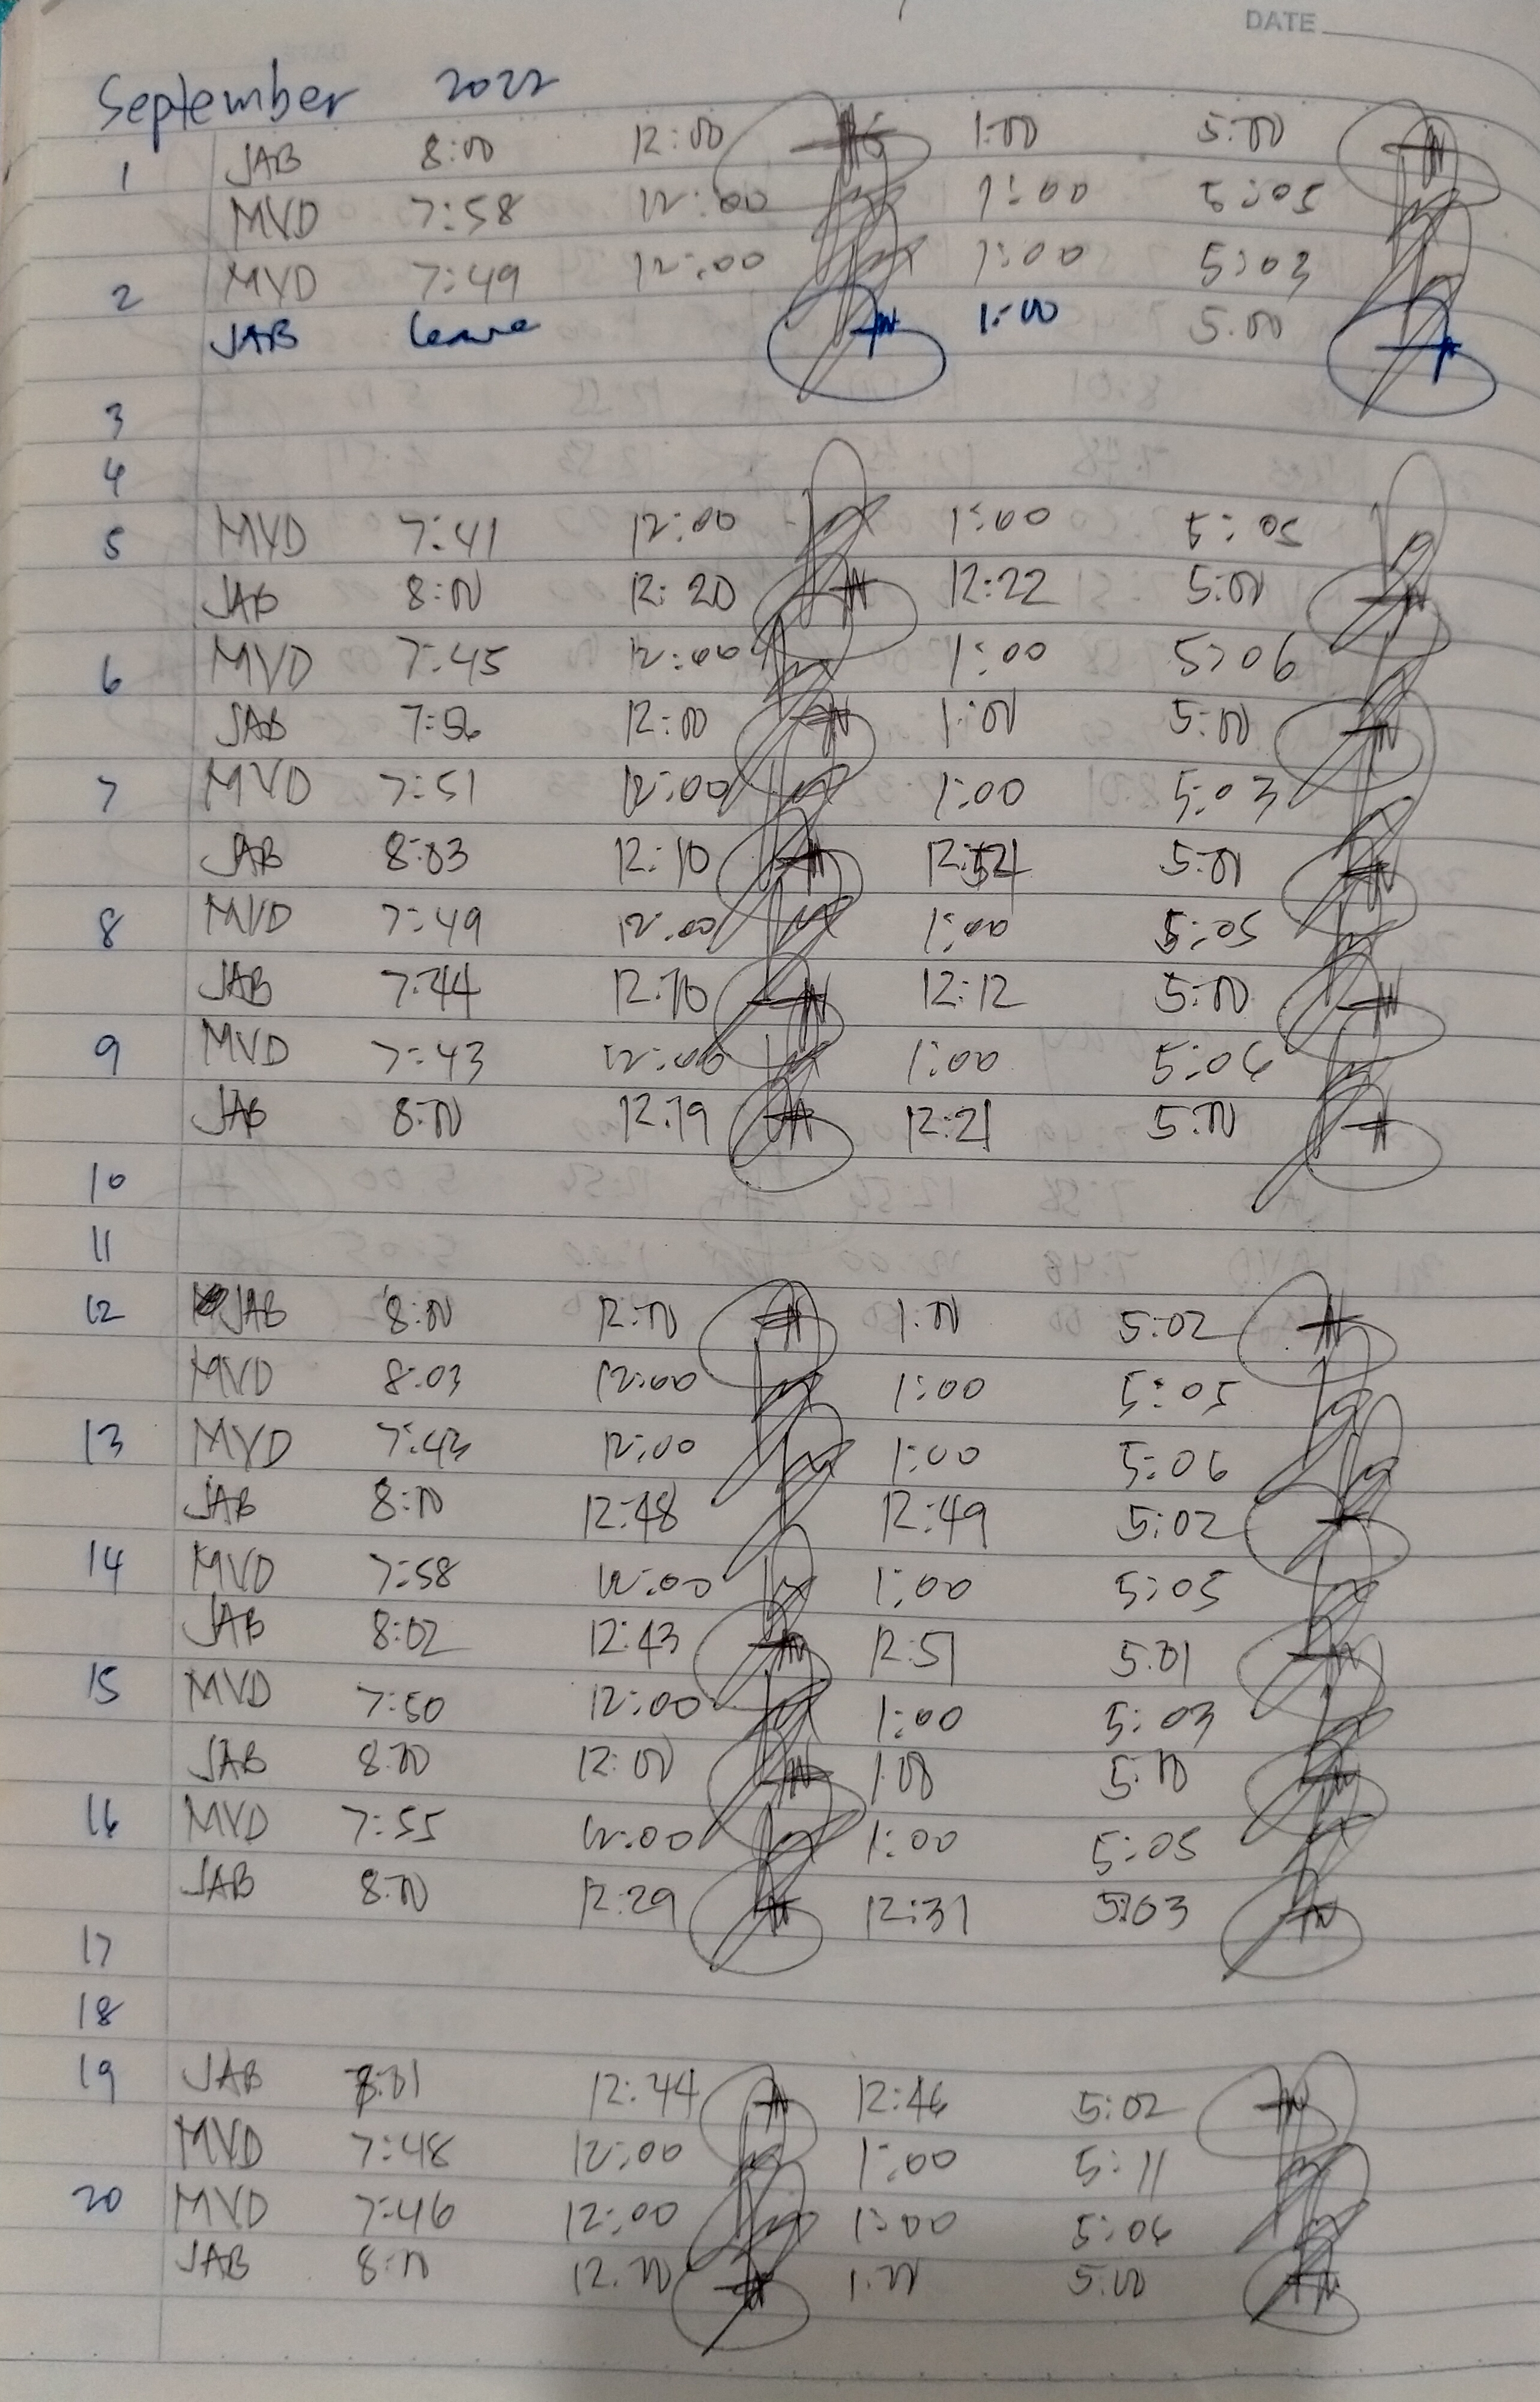 DATE
September 2022
1 JAB 8:00 12:00 1:00 5:00
MVD 7:58 12:00 1:00 5:05
2 MVD 7:49 12:00 1:00 5:03
JAB leave 1:00 5:00
3
4
5 MVD 7:41 12:00 1:00 5:05
JAB 8:00 12:20 12:22 5:00
6 MVD 7:45 12:00 1:00 5:06
JAB 7:56 12:00 1:01 5:00
7 MVD 7:51 12:00 1:00 5:03
JAB 8:03 12:10 5:01
8 MVD 7:49 12:00 1:00 5:05
JAB 7:44 12:10 12:12 5:00
9 MVD 7:43 12:00 1:00 5:06
JAB 8:00 12:19 12:21 5:00
10
11
12 JAB 8:00 12:00 1:00 5:02
MVD 8:03 12:00 1:00 5:05
13 MVD 7:43 12:00 1:00 5:06
JAB 8:00 12:48 12:49 5:02
14 MVD 7:58 12:00 1:00 5:05
JAB 8:02 12:43 12:51 5:01
15 MVD 7:50 12:00 1:00 5:03
JAB 8:00 12:00 1:00 5:00
16 MVD 7:55 12:00 1:00 5:05
JAB 8:00 12:29 12:31 5:03
17
18
19 JAB 8:01 12:44 12:46 5:02
MVD 7:48 12:00 1:00 5:11
20 MVD 7:46 12:00 1:00 5:06
JAB 8:00 12:00 1:00 5:00